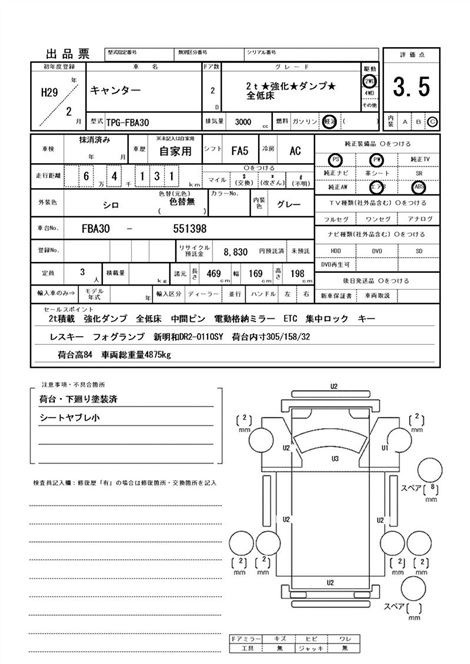 出品票 型式指定番号 類別区分番号 シリアル番号
初年度登録 車名 ドア数 グレード 駆動 評価点
H29年 キャンター 2 D 2t★強化★ダンプ★ 2WD 3.5
全低床 4WD
2月 その他
型式 TPG-FBA30 排気量 3000 cc 燃料 ガソリン 軽油 ( ) 内装 A B C
車検 抹消済み 車歴 ※未記入は自家用 自家用 シフト FA5 冷房 AC 純正装備品 〇をつける
PS PW 純正TV
走行距離 6万4千131km マイル 〇をつける $(交換) *(改ざん) #(不明) 純正ナビ 革シート SR
純正AW エアB ABS
外装色 シロ 色替(元色) 色替無 ( ) カラーNo. 内装色 グレー TV種類(社外品含む) 〇をつける
フルセグ ワンセグ アナログ
車台No. FBA30 - 551398 ナビ種類(社外品含む) 〇をつける
登録No. リサイクル預託金 8,830 円預託済 未預託 HDD DVD SD
DVD再生可
定員 3人 積載量 kg 諸元 長さ 469cm 幅 169cm 高さ 198cm 後日発送品 〇をつける
輸入車のみ⇒ モデル年式 年 輸入区分 ディーラー 並行 ハンドル 左 右 新車保証書 車両取説
セールスポイント
2t積載 強化ダンプ 全低床 中間ピン 電動格納ミラー ETC 集中ロック キー
レスキー フォグランプ 新明和DR2-0110SY 荷台内寸305/158/32
荷台高84 車両総重量4875kg
注意事項・不具合箇所
荷台・下廻り塗装済
シートヤブレ小
検査員記入欄：修復歴「有」の場合は修復箇所・交換箇所を記入
U2
(2)mm (2)mm
U2 U1
U3
スペア(8)mm
U2 U2
(2)mm (2)mm (2)mm (2)mm
U2
スペア( )mm
ドアミラー キズ ヒビ ワレ
工具 無 ジャッキ 無